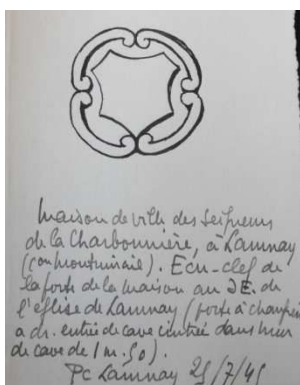 Maison de ville des Seigneurs
de la Charbonnière, à Lamnay
(con Montmirail). Ecu-clef de
la porte de la maison au S.E. de
l'église de Lamnay (porte à chanfrein
a dr. entrée de cave cintrée dans mur
de cave de 1 m. 50).
Pc Lamnay 25/7/45